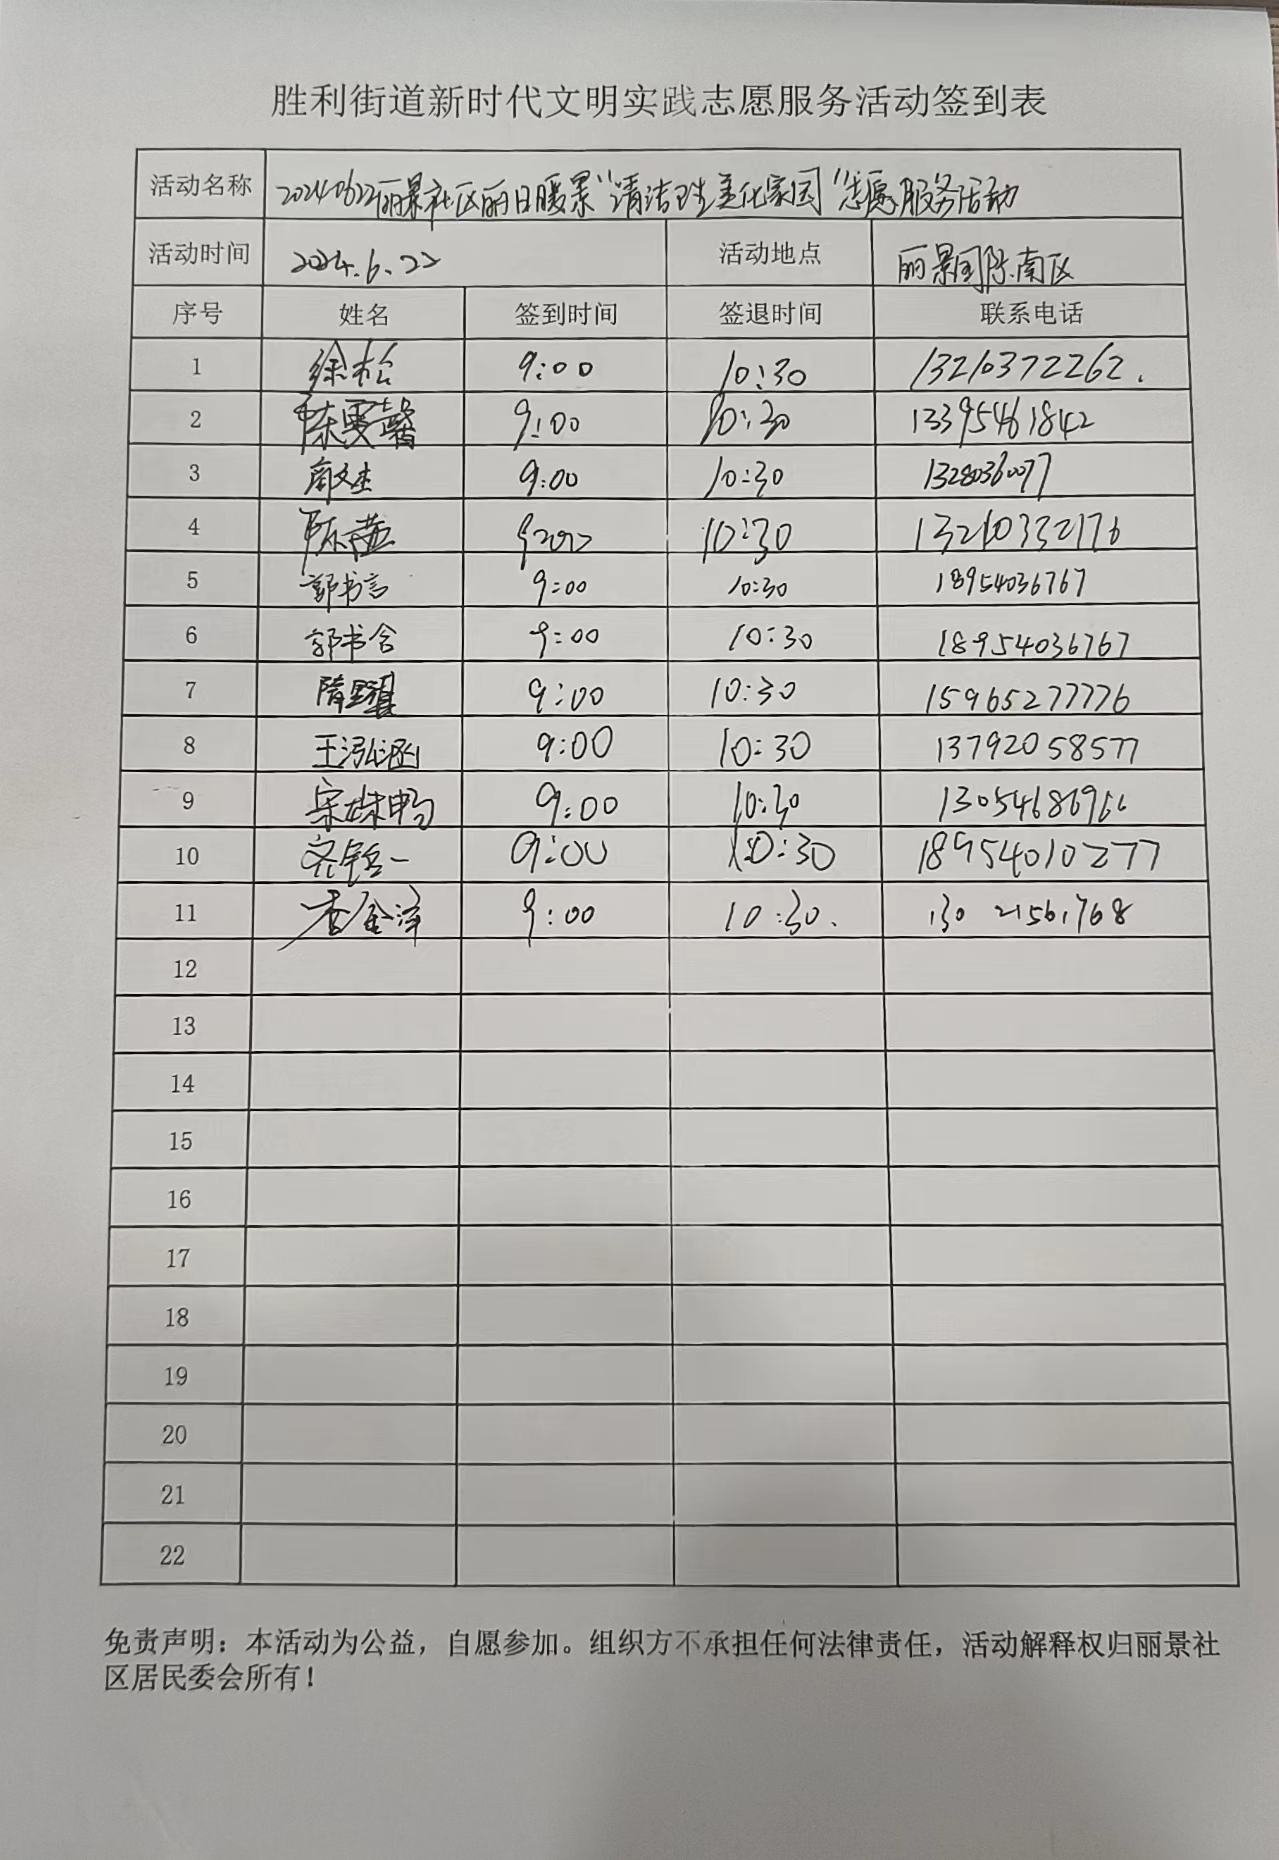 胜利街道新时代文明实践志愿服务活动签到表
活动名称 20240622丽景社区丽日暖景“清洁 美化家园”志愿服务活动
活动时间 2024.6.22 活动地点 丽景国际南区
序号 姓名 签到时间 签退时间 联系电话
1 徐松 9:00 10:30 13210372262.
2 陈雯馨 9:00 10:30 13395461842
3 9:00 10:30 13280360077
4 陈燕 10:30 13210332176
5 郭书言 9:00 10:30 18954036767
6 郭书含 9:00 10:30 18954036767
7 9:00 10:30 15965277776
8 王泓涵 9:00 10:30 13792058577
9 宋姝申 9:00 10:30
10 9:00 10:30 18954010277
11 李金泽 9:00 10:30. 130 21561768
12
13
14
15
16
17
18
19
20
21
22
免责声明：本活动为公益，自愿参加。组织方不承担任何法律责任，活动解释权归丽景社
区居民委会所有！